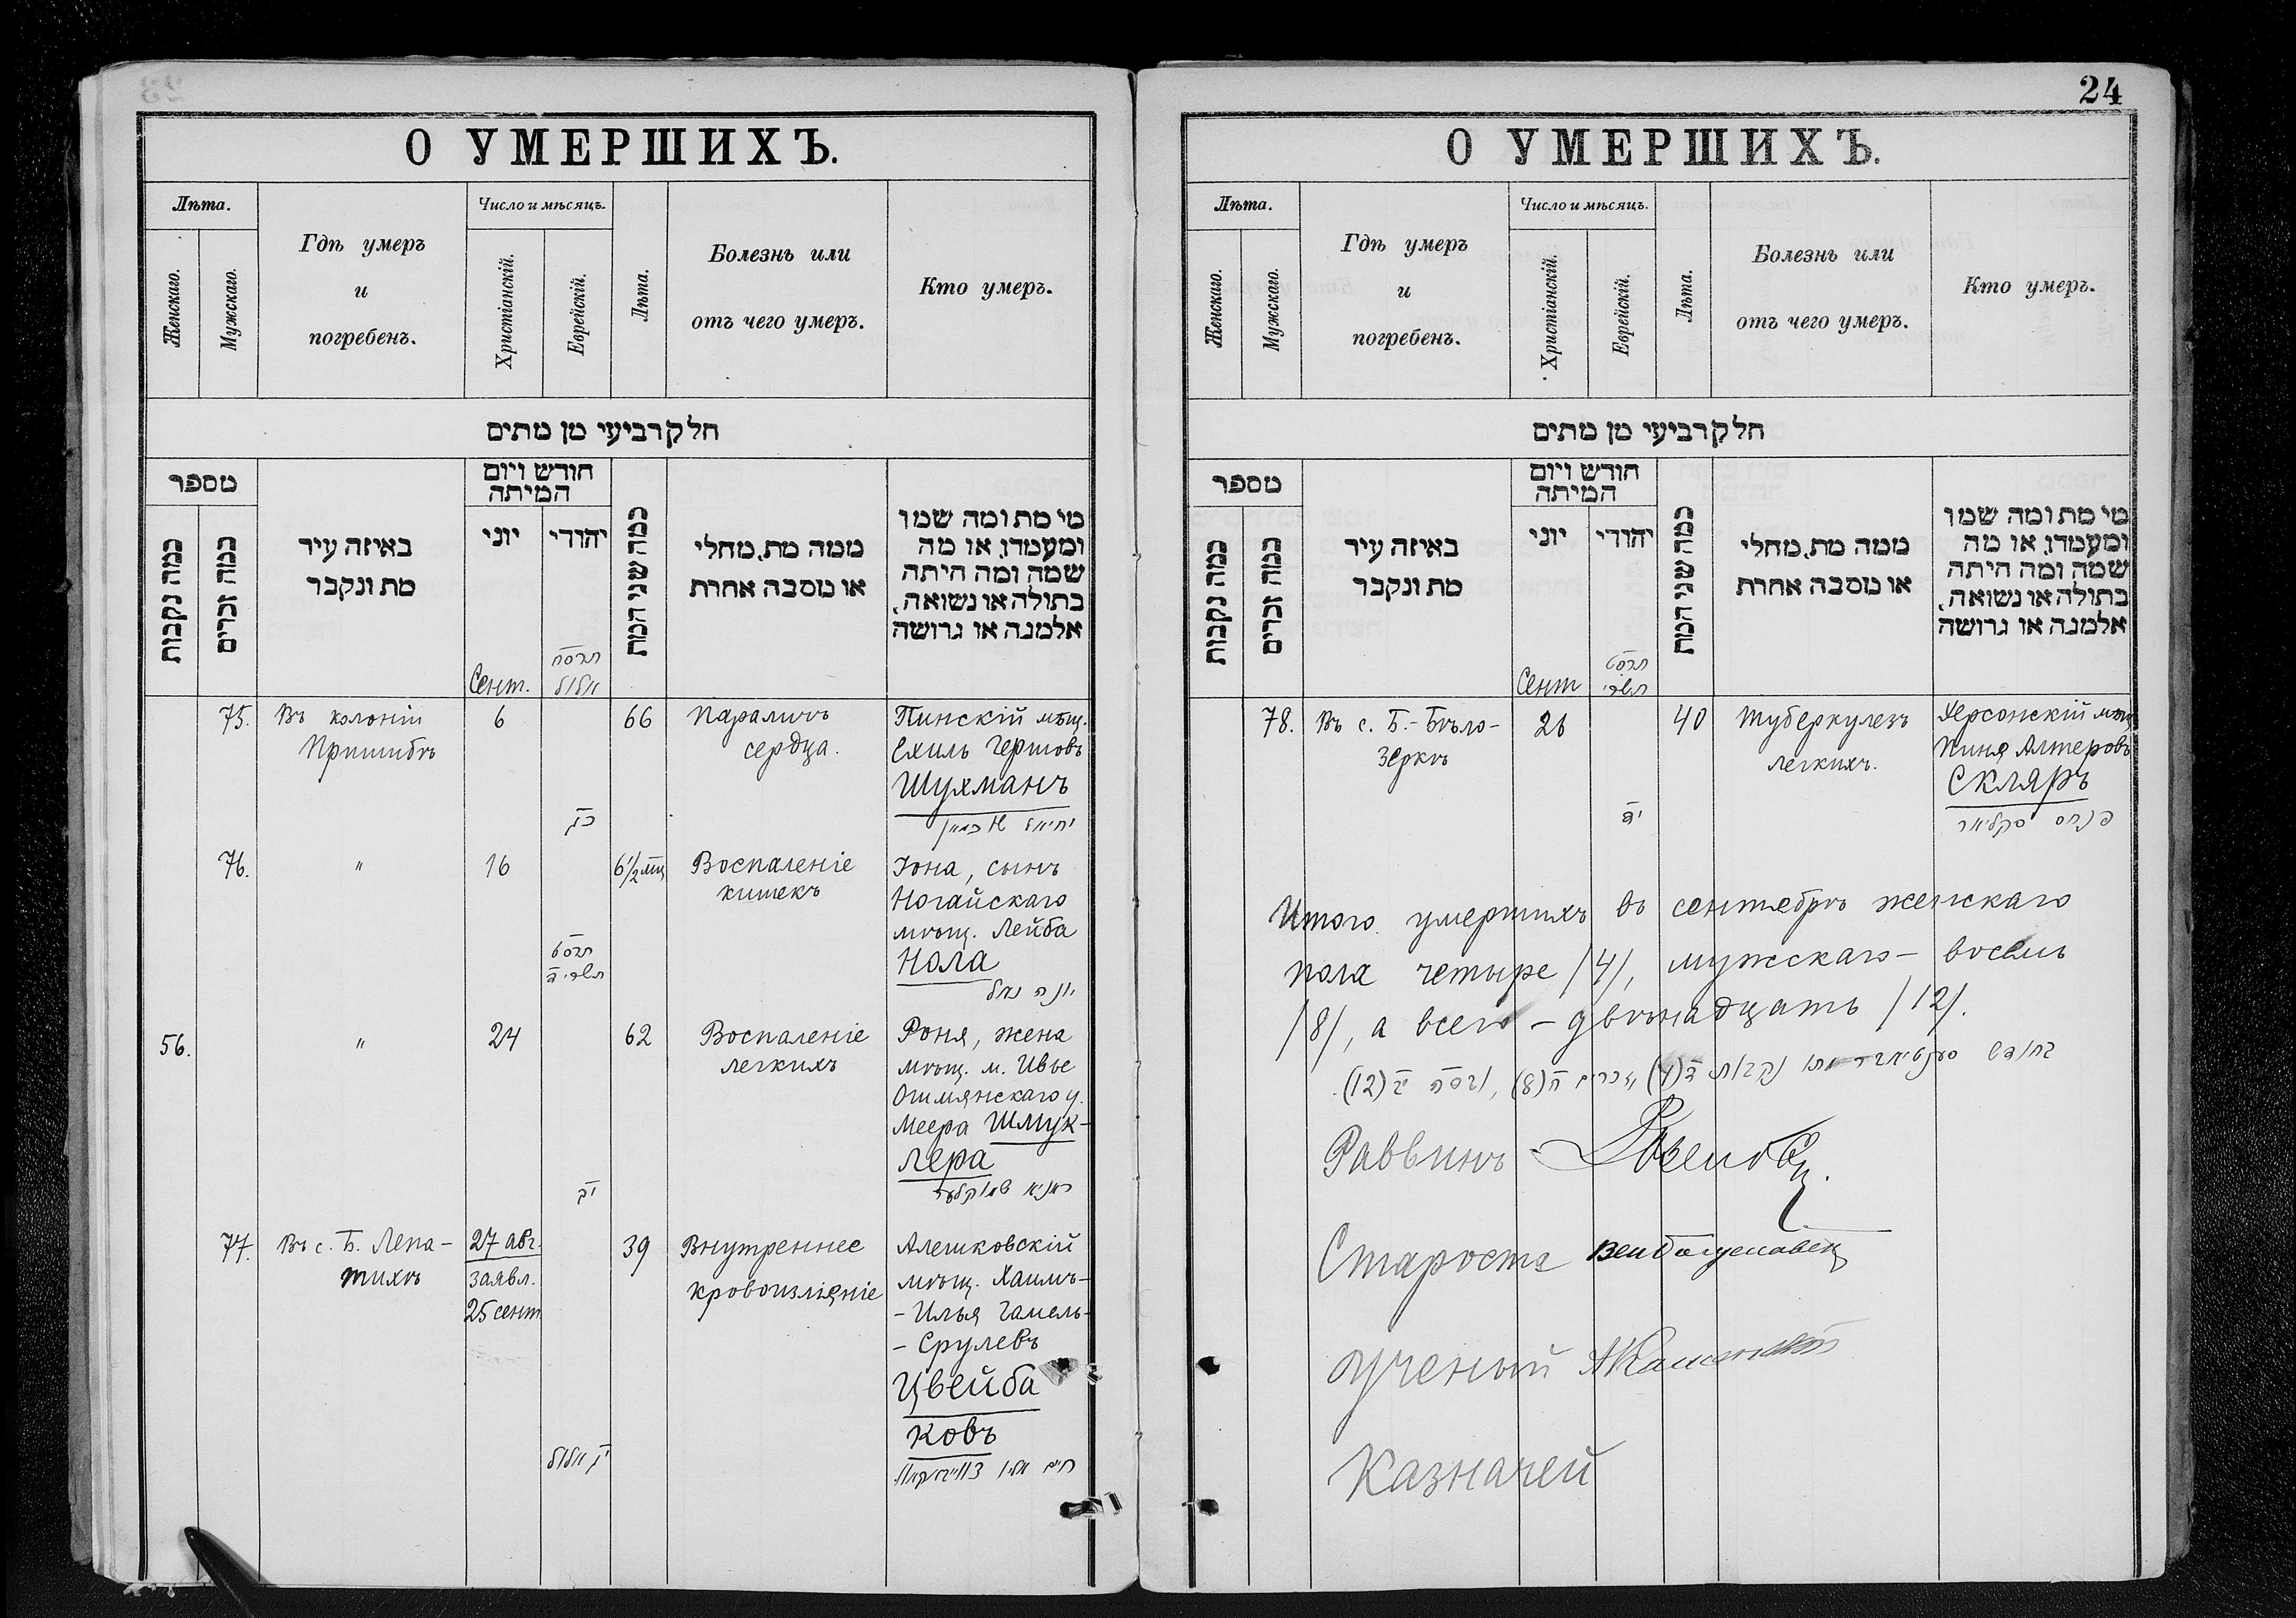 О УМЕРШИХЪ.
Лѣта.
Женскаго.
Мужскаго.
Гдѣ умеръ
и
погребенъ.
Число и мѣсяцъ.
Христіанскій.
Еврейскій.
Лѣта.
Болезнь или
отъ чего умеръ.
Кто умеръ.
חלק רביעי מן מתים
מספר
כמה נקבות
כמה זכרים
באיזה עיר
מת ונקבר
חודש ויום
המיתה
יוני
יהודי
כמה שני המת
ממה מת, מחלי
או מסבה אחרת
מי מת ומה שמו
ומעמדו, או מה
שמה ומה היתה
בתולה או נשואה,
אלמנה או גרושה
Сент.
תרסח
אלול
75.
Въ колоніи
Пришибъ
6
כג
66
Параличъ
сердца.
Пинскій мѣщ.
Ехиль Гершовъ
Шухманъ
76.
"
16
תרסט
תשרי ה
6 1/2 мц
Воспаленіе
кишекъ
Іона, сынъ
Ногайскаго
мѣщ. Лейба
Нола
56.
"
24
62
Воспаленіе
легкихъ
Роня, жена
мѣщ. м. Ивье
Ошмянскаго у.
Меера Шмук-
лера
77.
Въ с. Б. Лепа-
тихѣ
27 авг.
заявл.
25 сент.
יג אלול
39
Внутреннее
кровоизліяніе
Алешковскій
мѣщ. Хаимъ-
- Илья Гамель-
- Срулевъ
Цвейба
ковъ
24
О УМЕРШИХЪ.
Лѣта.
Женскаго.
Мужскаго.
Гдѣ умеръ
и
погребенъ.
Число и мѣсяцъ.
Христіанскій.
Еврейскій.
Лѣта.
Болезнь или
отъ чего умеръ.
Кто умеръ.
חלק רביעי מן מתים
מספר
כמה נקבות
כמה זכרים
באיזה עיר
מת ונקבר
חודש ויום
המיתה
יוני
יהודי
כמה שני המת
ממה מת, מחלי
או מסבה אחרת
מי מת ומה שמו
ומעמדו, או מה
שמה ומה היתה
בתולה או נשואה,
אלמנה או גרושה
Сент
תרסט
תשרי
78.
Въ с. Б.-Бѣло-
зеркѣ
26
40
Туберкулезъ
легкихъ.
Херсонскій мѣщ
Пиня Алтеровъ
Скляръ
פנחס סקליאר
Итого умершихъ въ сентябрѣ женскаго
пола четыре /4/, мужскаго – восемь
/8/, а всего – двѣнадцать /12/.
Раввинъ
Староста
Ученый
Казначей